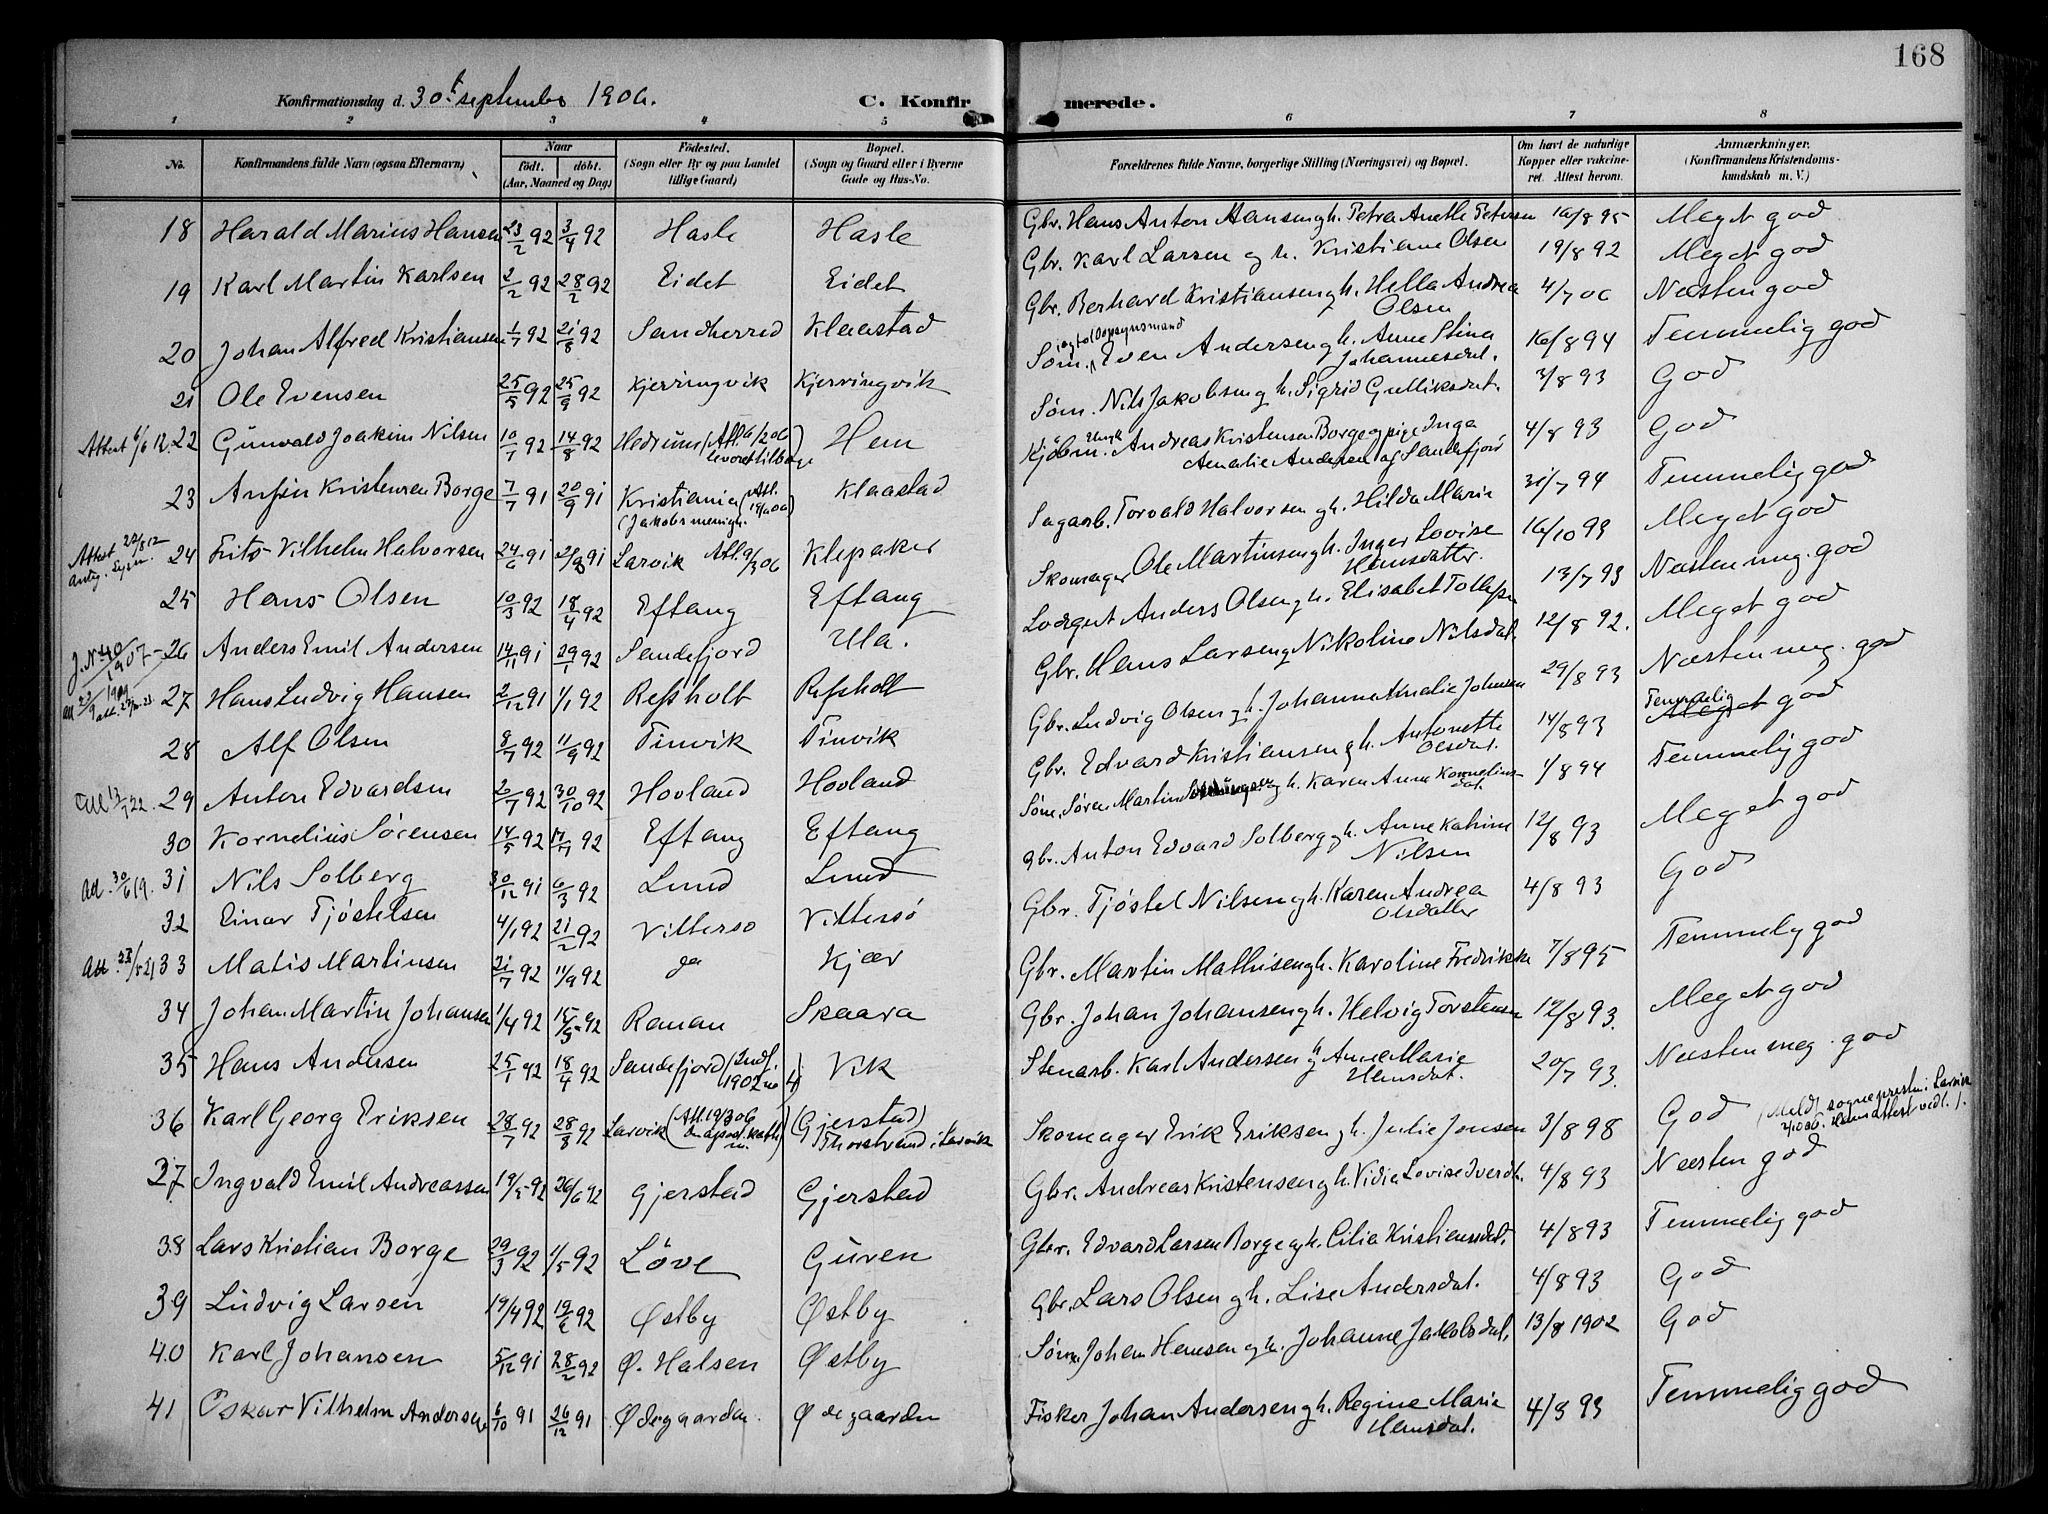 168
Konfirmationsdag d. 30t september 1906. C. Konfirmerede.
1 2 3 4 5 6 7 8
No. Konfirmandens fulde Navn (ogsaa Efternavn). Naar født. døbt. (Aar, Maaned og Dag) Fødested. (Sogn eller By og paa Landet tillige Gaard) Bopæl. (Sogn og Gaard eller i Byerne Gade og Hus-No. Forældrenes fulde Navne, borgerlige Stilling (Næringsvei) og Bopæl. Om havt de naturlige Kopper eller vakcineret. Attest herom. Anmærkninger. (Konfirmandens Kristendomskundskab m. V.)
18 Harald Marius Hansen 23/2 92 3/4 92 Hasle Hasle Gbr. Hans Anton Hansen og h. Petra Anette Petersen 16/8 95 Meget god
19 Karl Martin Karlsen 2/2 92 28/2 92 Eidet Eidet Gbr. Karl Larsen og h. Kristiane Olsen 19/8 92 Meget god
20 Johan Alfred Kristiansen 1/7 92 21/8 92 Sandherred Klaastad Gbr. Berhard Kristiansen og h. Hella Andrea Olsen 4/7 06 Næsten god
21 Ole Evensen 25/5 92 25/9 92 Kjerringvik Kjerringvik Søm. Even Andersen og h. Anne Stina Johannesdat. 16/8 94 Temmelig god
Attest 6/6 12. 22 Gunvald Joakim Nilsen 10/7 92 14/8 92 Hedrum (Att. 6/2 06 Hem Søm. Nils Jakobsen og h. Sigrid Gulliksdat. 3/8 93 God
23 Anfin Kristensen Borge 7/7 91 20/9 91 Kristiania (Jakobs menigh. Klaastad Kjøbm. Andreas Kristensen Borge og pige Inga Amalie Andersen af Sandefjord 4/8 93 God
Attest 22/8 12 24 Frits Vilhelm Halvorsen 24/6 91 2/8 91 Larvik Att. 9/3 06 Klepaker Sagarb. Torvald Halvorsen og h. Hilda Marie 31/7 94 Temmelig god
25 Hans Olsen 10/3 92 18/4 92 Eftang Eftang Skomager Ole Martinsen og h. Inger Lovise Hansdatter. 16/10 93 Meget god
J. N. 40 1907 - 26 Anders Emil Andersen 14/11 91 29/1 92 Sandefjord Ula. Lodsgut Anders Olsen og h. Elisabet Tollefsen 13/7 93 Næsten meg. god
27 Hans Ludvig Hansen 2/12 91 1/1 92 Refsholt Refsholt Gbr. Hans Larsen og Nikoline Nilsdat. 12/8 92. Meget god
28 Alf Olsen 8/7 92 11/9 92 Tinvik Tinvik Gbr. Ludvig Olsen og h. Johanne Amalie Johnsen 29/8 93 Næsten meg. god
Att 13/7 22. 29 Anton Edvardsen 20/7 92 30/10 92 Hovland Hovland Gbr. Edvard Kristiansen og h. Antonette Olsdat. 14/8 93 Temmelig god
30 Kornelius Sørensen 14/5 92 17/7 92 Eftang Eftang Søm. Søren Martin og h. Karen Anne Korneliusdat. 1/8 94 Temmelig god
Att. 30/6 19. 31 Nils Solberg 30/12 91 6/3 92 Lund Lund Gbr. Anton Edvard Solberg og h. Anne Katrine Nilsen 12/8 93 Meget god
32 Einar Tjøstelsen 4/1 92 21/2 92 Vittersø Vittersø Gbr. Tjøstel Nilsen og h. Karen Andrea Olsdatter 4/8 93 God
33 Matis Martinsen 21/7 92 11/9 92 Kjær Gbr. Martin Mathisen og h. Karoline Fredrikke 7/8 95 Temmelig god
34 Johan Martin Johansen 1/4 92 15/5 92 Raman Skaara Gbr. Johan Johansen og h. Helvig Torstensen 12/8 93. Meget god
35 Hans Andersen 25/1 92 18/4 92 Sandefjord (Indf. 1902 no 4) Vik Stenarb. Karl Andersen og h. Anne Marie Hansdat. 20/7 93. Næsten meg. god
36 Karl Georg Eriksen 28/7 92 28/8 92 Larvik (Att. 19/3 06 (Gjerstad) Thorstrand i Larvik Skomager Erik Eriksen og h. Julie Jonsen 3/8 98 God (Meldt sognepresten i Larvik 2/10 06. Hans attest vedl.).
37 Ingvald Emil Andreassen 19/5 92 26/6 92 Gjerstad Gjerstad Gbr. Andreas Kristensen og h. Vidia Lovise Iversdt. 4/8 93 Næsten god
38 Lars Kristian Borge 29/3 92 1/5 92 Løve Guren Gbr. Edvard Larsen Borge og h. Cilia Kristiansdat. 4/8 93 Temmelig god
39 Ludvig Larsen 19/4 92 19/6 92 Østby Østby Gbr. Lars Olsen og h. Lise Andersdat. 4/8 93 God
40 Karl Johansen 5/12 91 28/2 92 Ø. Halsen Østby Søm. Johan Hansen og h. Johanne Jakobsdat. 13/8 1902 God
41 Oskar Vilhelm Andersen 6/10 91 26/12 91 Ødegaarden. Ødegaarden Fisker Johan Andersen og h. Regine Marie Hansdat. 4/8 93 Temmelig god